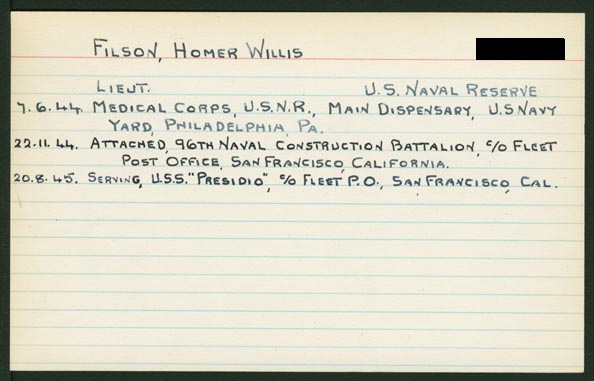 FILSON, HOMER WILLIS
LIEUT. U.S. NAVAL RESERVE
7.6.44. MEDICAL CORPS, U.S.N.R., MAIN DISPENSARY, U.S NAVY
YARD, PHILADELPHIA, PA.
22.11.44. ATTACHED, 96TH NAVAL CONSTRUCTION BATTALION, C/O FLEET
POST OFFICE, SAN FRANCISCO, CALIFORNIA.
20.8.45. SERVING, U.S.S. "PRESIDIO", C/O FLEET P.O., SAN FRANCISCO, CAL.